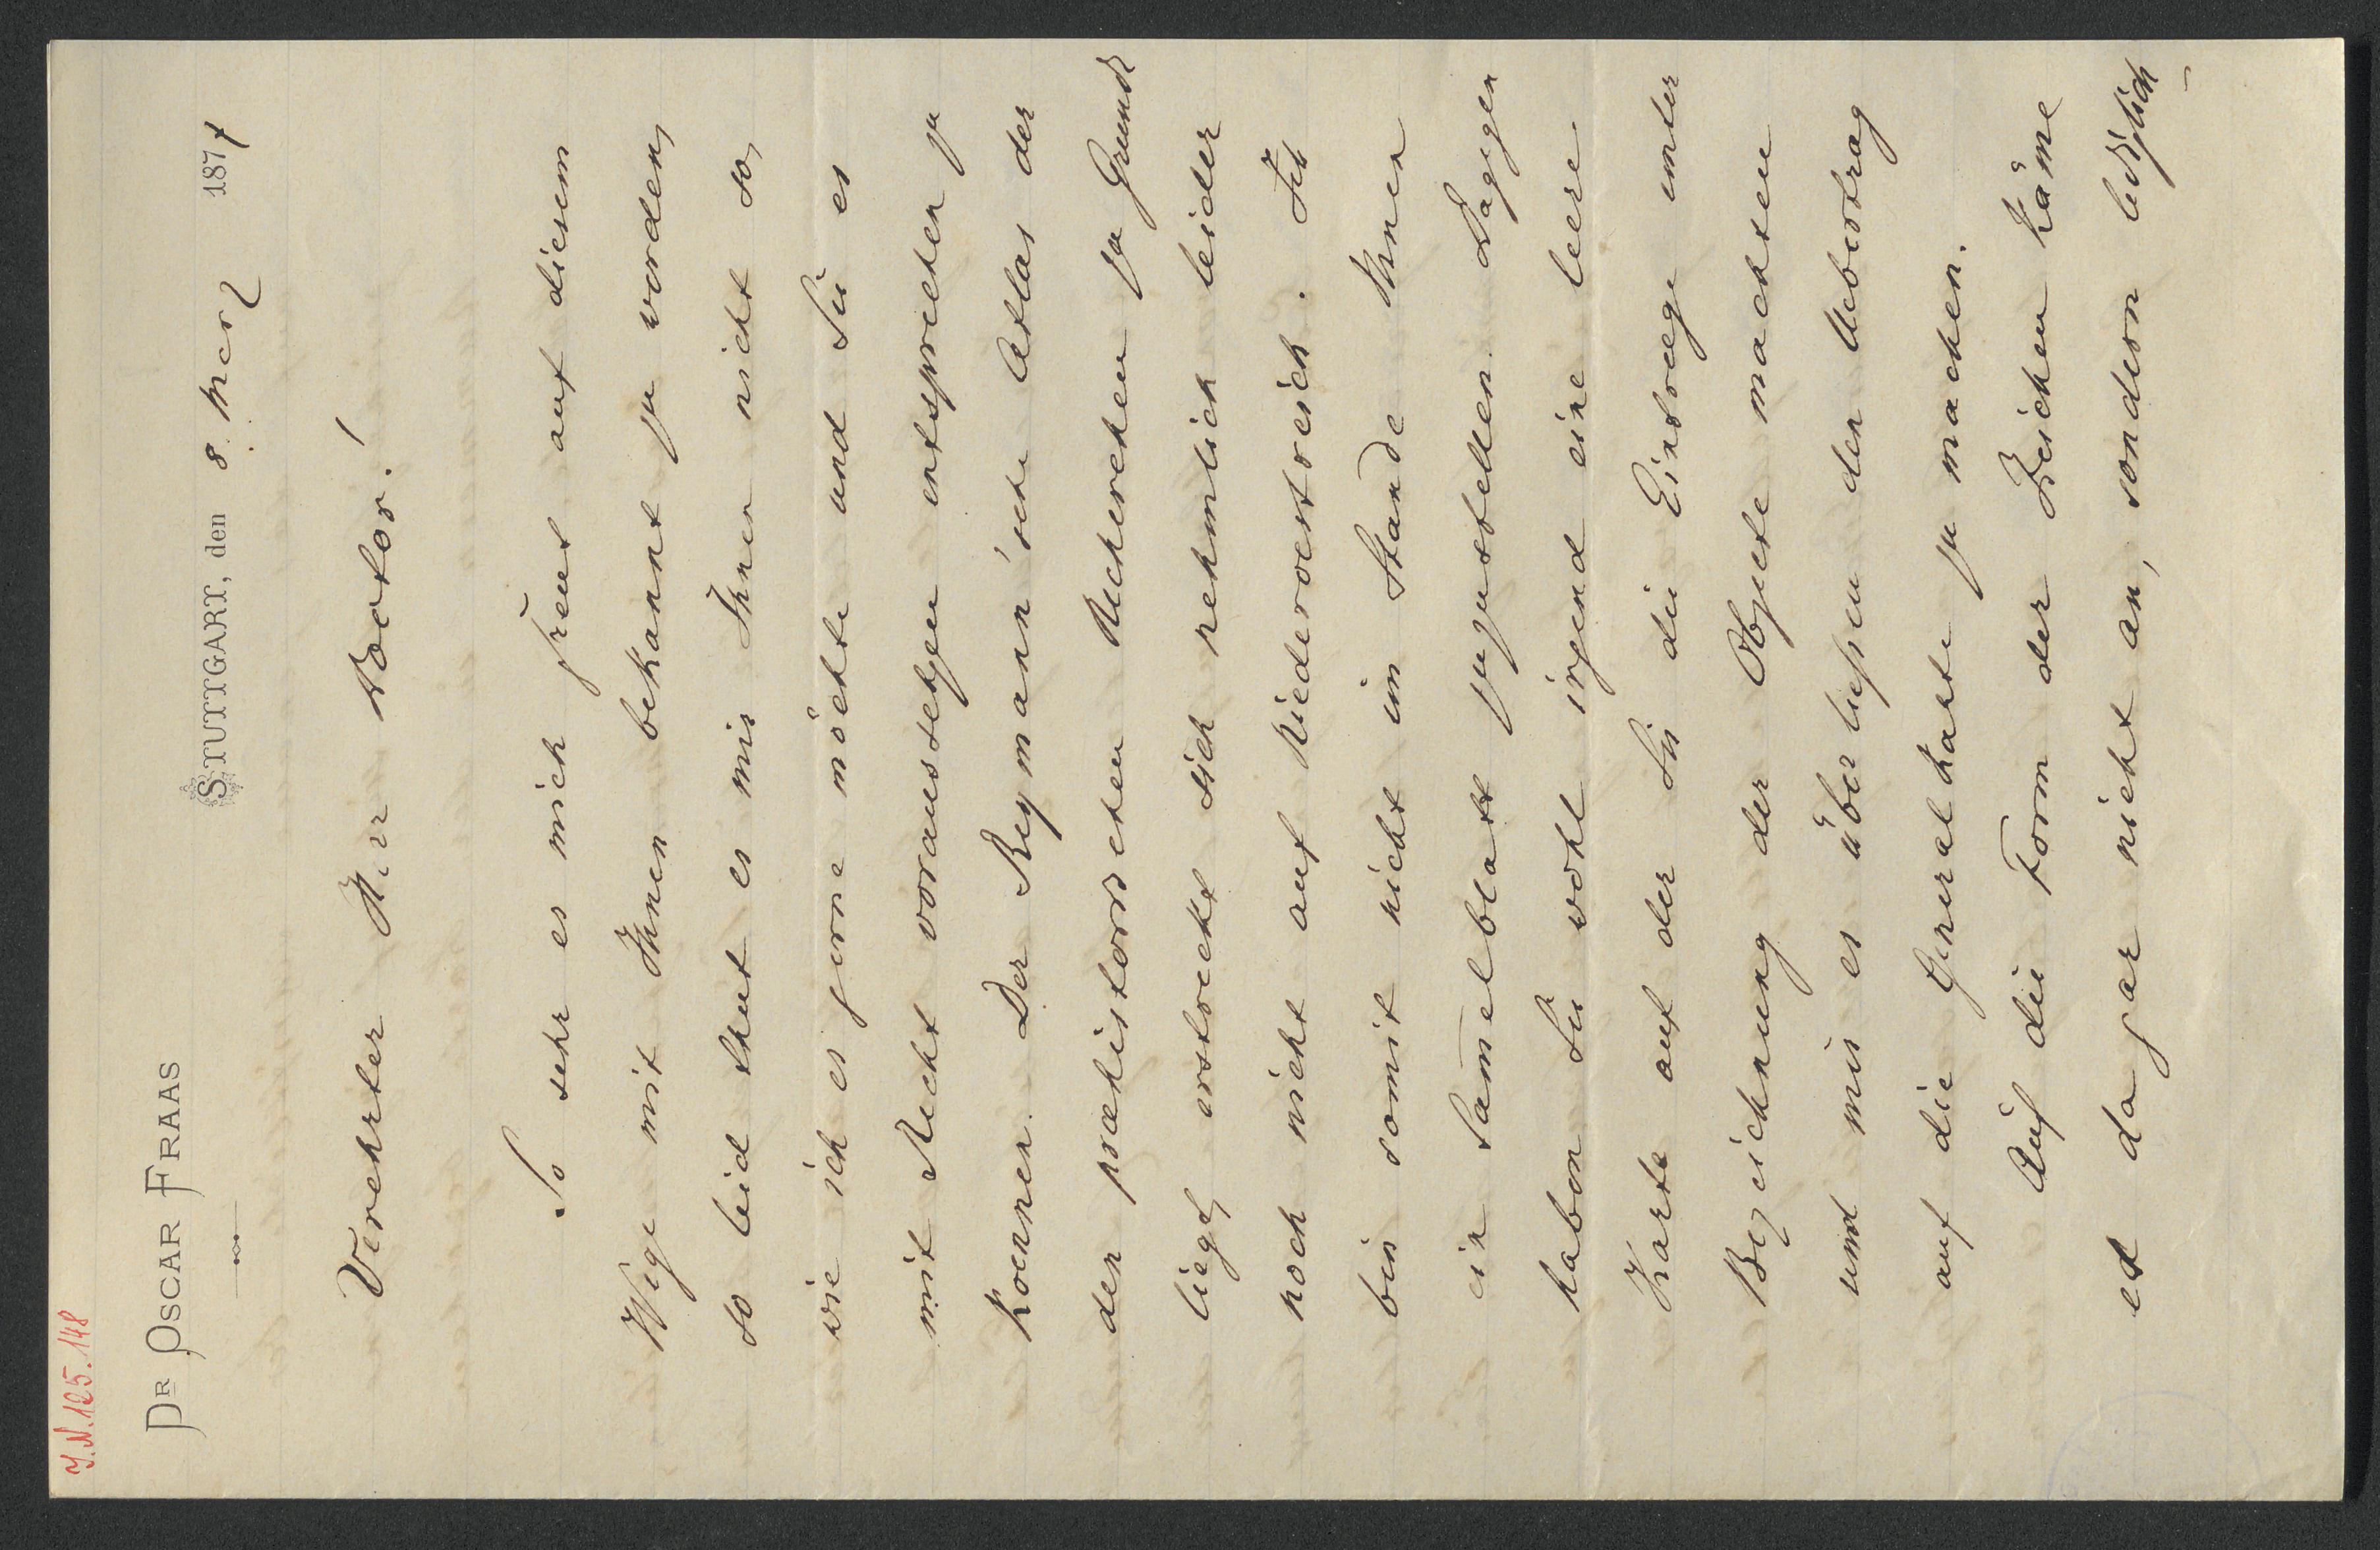 I.N. 125.148
DR OSCAR FRAAS
STUTTGART, den 8. Merz 1877
Verehrter Herr Doctor!
So sehr es mich freut auf diesem
Wege mit Ihnen bekannt zu werden,
so leid thut es mir Ihnen nicht so,
wie ich es gerne möchte und Sie es
mit Recht voraussetzen entsprechen zu
koennen. Der Reymann'sche Atlas der
den praehistorischen Recherchen zu Grunde
liegt, erstreckt sich nehmlich leider
noch nicht auf Niederoestreich. Ich
bin somit nicht im Stande Ihnen
ein Sam̄elblatt zuzustellen. Dagegen
haben Sie wohl irgend eine leere
Karte auf der Sie die Eintraege unter
Bezeichnung der Objecte machten
und mir es überliessen den Uebertrag
auf die Generalkarte zu machen.
Auf die Form der Zeichen käme
es da gar nicht an, sondern lediglich